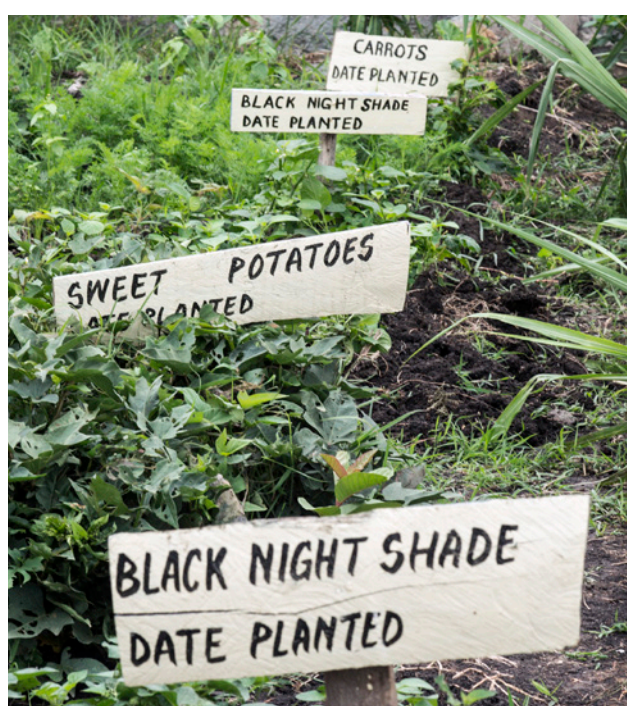 CARROTS
DATE PLANTED
BLACK NIGHT SHADE
DATE PLANTED
SWEET POTATOES
DATE PLANTED
BLACK NIGHT SHADE
DATE PLANTED